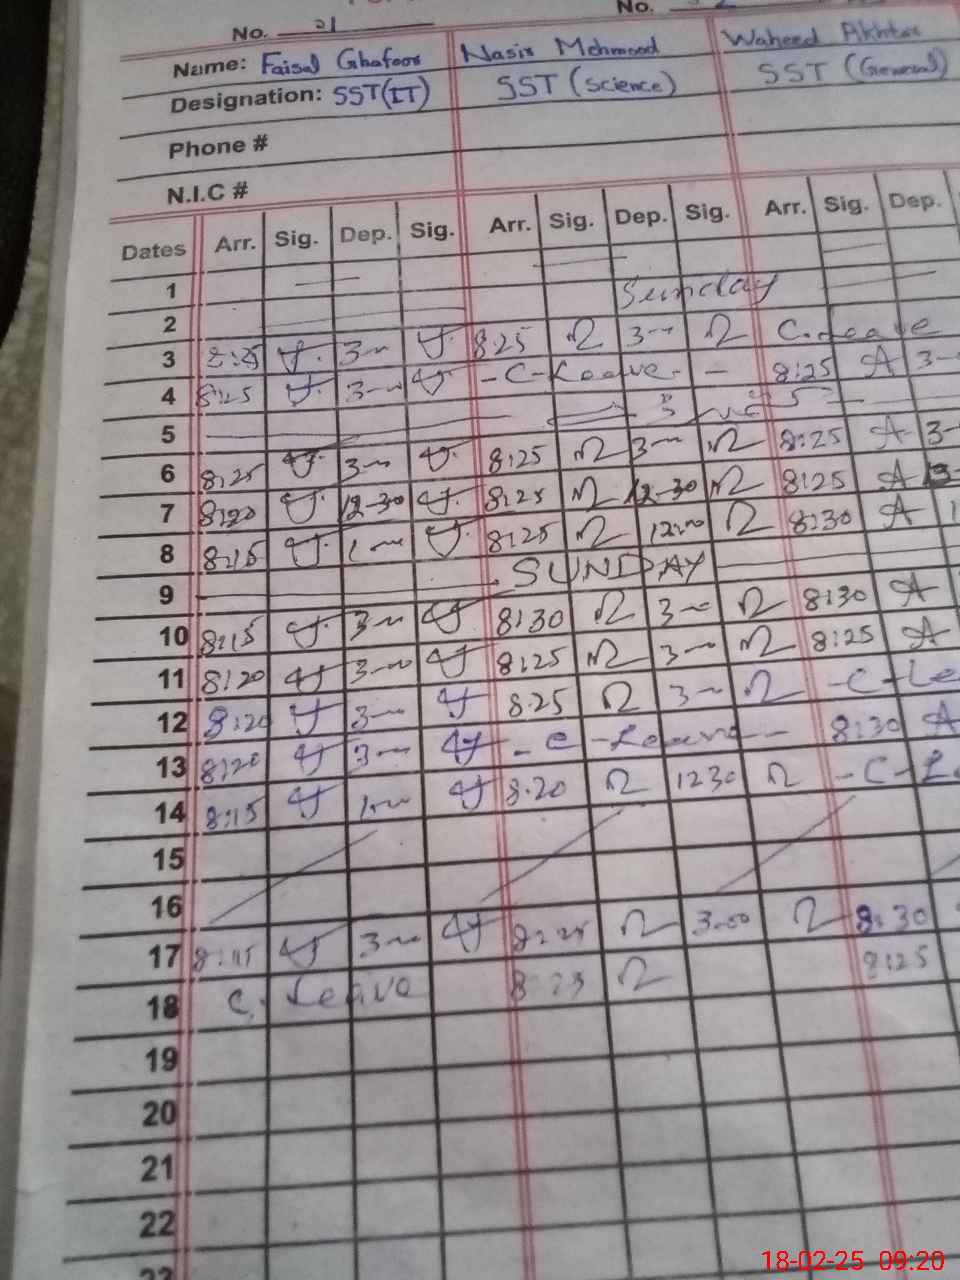 No. 21 No.
Name: Faisal Ghafoor Nasir Mehmood Waheed Akhtar
Designation: SST(IT) SST (Science) SST (General)
Phone #
N.I.C #
Dates Arr. Sig. Dep. Sig. Arr. Sig. Dep. Sig. Arr. Sig. Dep.
1
2 Sunday
3 8:25 3 8.25 3 C. Leave
4 8:25 3 - C - Leave - - 8:25 A 3
5
6 8:25 3 8:25 3 8:25 A 3
7 8:20 12-30 8:25 12-30 8:25 A
8 8:15 1 8:25 12:00 8:30 A
9 SUNDAY
10 8:15 3 8:30 3 8:30 A
11 8:20 3 8:25 3 8:25 A
12 8:20 3 8.25 3 - C - Le
13 8:20 3 - C - Leave - - 8:30 A
14 8:15 1 8.20 1230 - C - Le
15
16
17 8:15 3 8:25 3.00 8:30
18 C. Leave 8 25 8:25
19
20
21
22
23
18-02-25 09:20